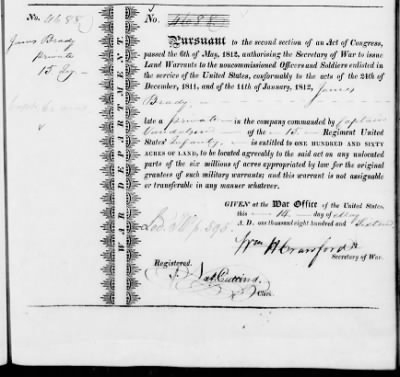 No. 4688
James Brady
private
15 Reg.
WAR DEPARTMENT.
No. 4688
Pursuant to the second section of an Act of Congress,
passed the 6th of May, 1812, authorising the Secretary of War to issue
Land Warrants to the noncommissioned Officers and Soldiers enlisted in
the service of the United States, conformably to the acts of the 24th of
December, 1811, and of the 11th of January, 1812, James
Brady
late a private in the company commanded by Captain
of the 15 Regiment United
States' Infantry is entitled to ONE HUNDRED AND SIXTY
ACRES OF LAND, to be located agreeably to the said act on any unlocated
parts of the six millions of acres appropriated by law for the original
grantees of such military warrants; and this warrant is not assignable
or transferable in any manner whatever.
GIVEN at the War Office of the United States,
this 14 day of May
A.D. one thousand eight hundred and Sixteen
Wm H Crawford
Secretary of War.
Registered.